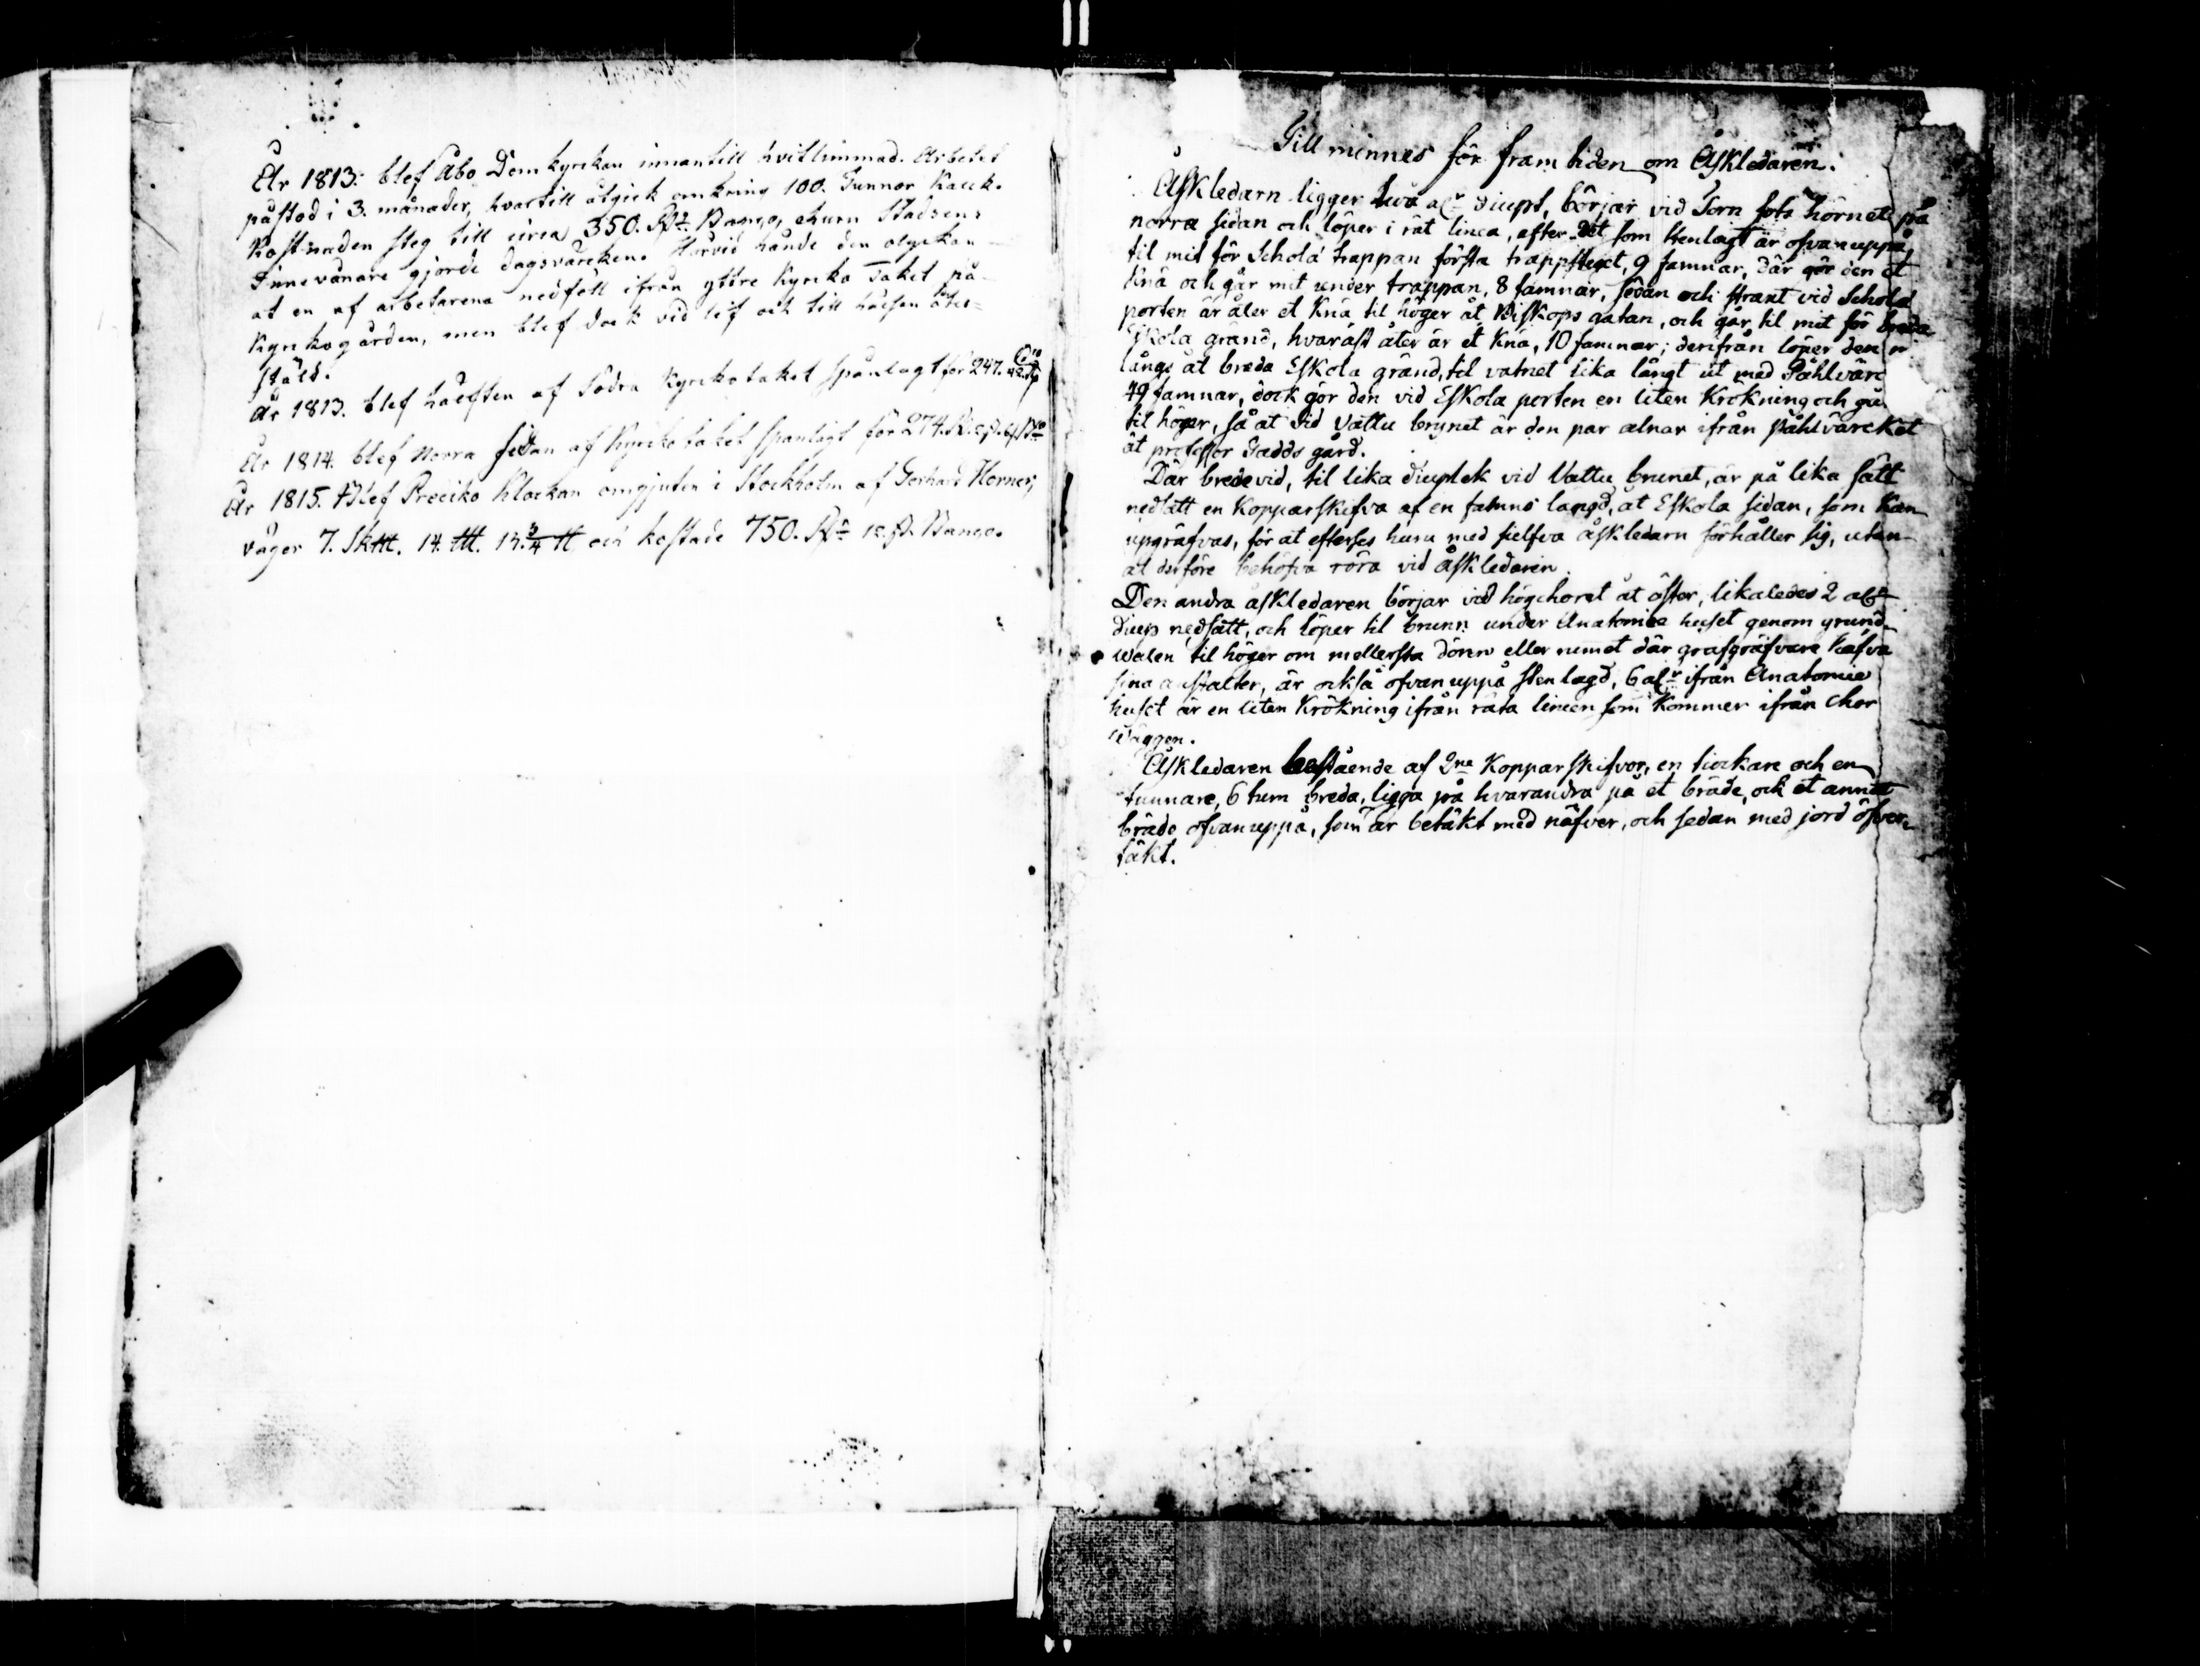 År 1813. blef Åbo Domkyrckan innantill hvitlimmad. Arbetet
påstod i 3. månader, hvartill åtgick omkring 100. Tunnor Kalck.
Kostnaden steg till circa 350. Rd Banco, churu Stadsens
Innevånare gjorde dagsvärcken. Härvid hände den olyckan
at en af arbetarena nedföll ifrån yttre Kyrcko Taket på
Kyrckogården, men blef dock vid lif och till hälsan åter-
stäld.
År 1813. blef hälften af Södra Kyrckotaket spånlagt för 247.
År 1814. blef Norra sidan af Kyrckotaket spånlagt för 274. R.
År 1815. Blef Prediko Klockan omgjuten i Stockholm af Gerhard Horner,
väger 7. Sk℔. 14. L℔. 13.3/4 ℔ och kostade 750. Rd 12. s. Banco.
Till minnes för framtiden om Åskledaren.
Åskledarn ligger twå alr diupt, börjar vid Torn fots hörnet på
norra sidan och löper i rät linea, after det som stenlagt är ofvanuppå,
til mit för Schola trappan första trappsteget, 9 famnar, där gör den et
Knä och går mit under trappan, 8 famnar, sedan och straxt vid Schola
porten är åter et Knä til höger åt Biskops gatan, och går til mit för breda
Eskola gränd, hvaräst åter är et Knä, 10 famnar; derifrån löper den
långs åt breda Eskola gränd, til vatnet lika långt ut med Påhlvärc
49 famnar, dock gör den vid Eskola porten en liten Krökning och går
til höger, så at vid Vattu brynet är den par alnar ifrån påhlvärcket
åt professor Gadds gård.
Där bredevid, til lika diuplek vid Vattu brunet, är på lika sätt
nedsatt en Kopparskifva af en famns längd, åt Eskola sidan, som Kan
upgräfvas, för at efterses huru med sielfva åskledarn förhåller sig, utan
at derföre behöfva röra vid åskledaren.
Den andra åskledaren börjar vid högchoret åt öster, likaledes 2 alr
diup nedsatt, och löper til brunn under Anatomiæ huset genom grund-
walen til höger om mellersta dören eller rumet där grafgräfvare hafva
sina anstalter, är också ofvanuppå stenlagd, 6 alr ifrån Anatomie
huset är en liten Krökning ifrån räta lineen som Kommer ifrån Chor
wäggen.
Åskledaren bestående af 2ne Kopparskifvor, en tiockare och en
tunnare, 6 tum breda, ligga på hvarandra på et bräde, och et annat
bräde ofvanuppå, som är betäkt med näfver, och sedan med jord öfver-
täkt.